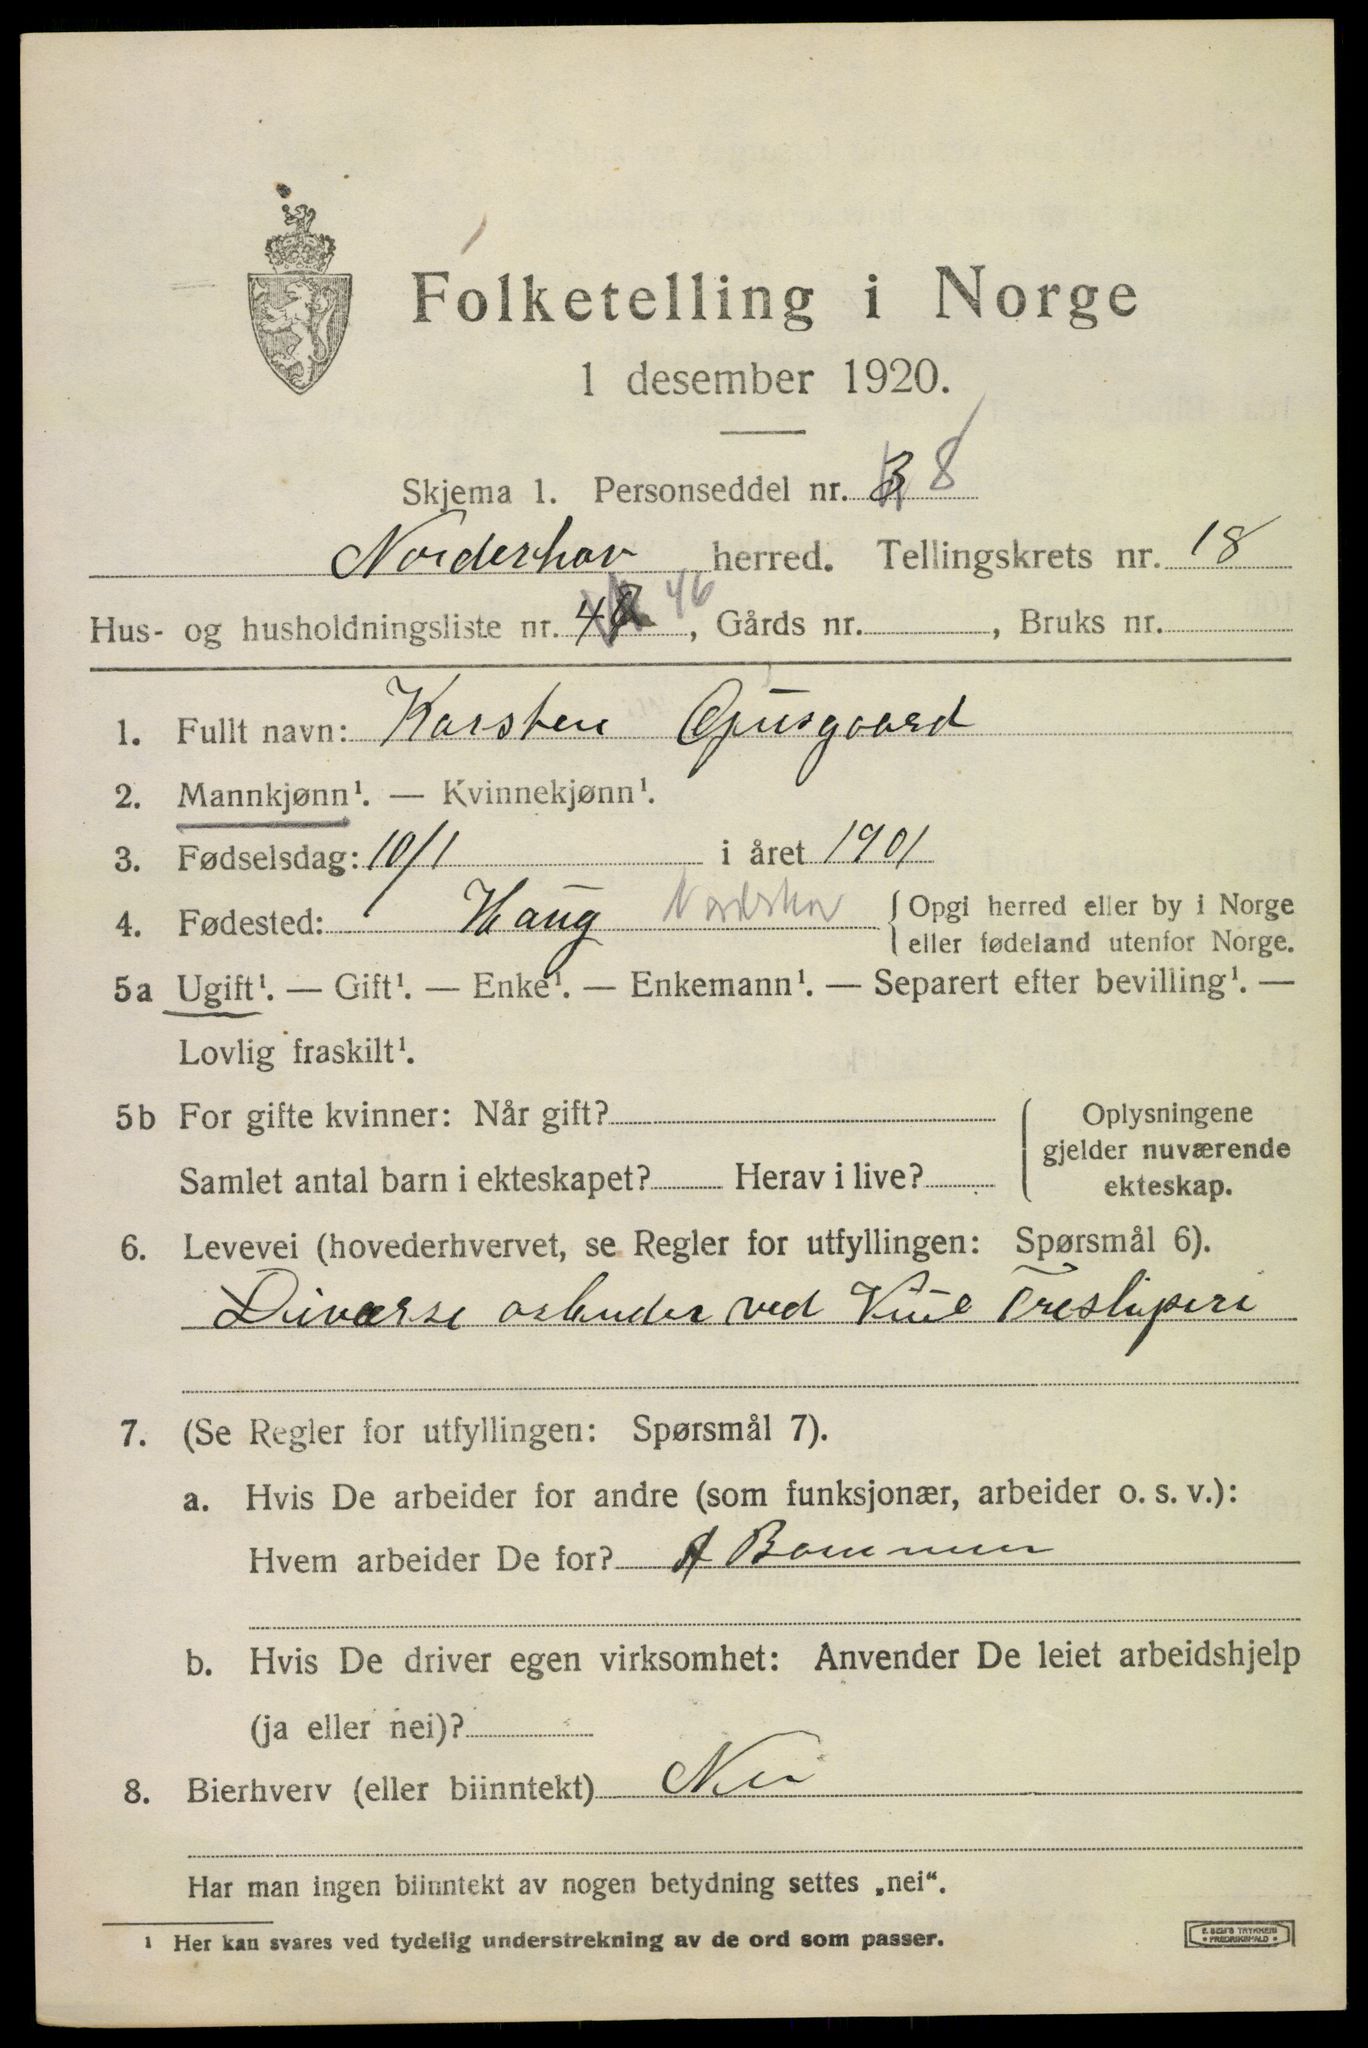 Folketelling i Norge
1 desember 1920.
Skjema 1. Personseddel nr. 8
Norderhov herred. Tellingskrets nr. 18
Hus- og husholdningsliste nr. 46, Gårds nr. , Bruks nr.
1. Fullt navn: Karsten Gjusgaard
2. Mannkjønn¹. — Kvinnekjønn¹.
3. Fødselsdag: 10/1 i året 1901
4. Fødested: Haug Norderhov { Opgi herred eller by i Norge
eller fødeland utenfor Norge.
5a Ugift¹. — Gift¹. — Enke¹. — Enkemann¹. — Separert efter bevilling¹. —
Lovlig fraskilt¹.
5b For gifte kvinner: Når gift?
Samlet antal barn i ekteskapet? Herav i live?
Oplysningene
gjelder nuværende
ekteskap.
6. Levevei (hovederhvervet, se Regler for utfyllingen: Spørsmål 6).
Diverse arbeider ved Tresliperi
7. (Se Regler for utfyllingen: Spørsmål 7).
a. Hvis De arbeider for andre (som funksjonær, arbeider o. s. v.):
Hvem arbeider De for? A
b. Hvis De driver egen virksomhet: Anvender De leiet arbeidshjelp
(ja eller nei)?
8. Bierhverv (eller biinntekt) Nei
Har man ingen biinntekt av nogen betydning settes „nei“.
¹ Her kan svares ved tydelig understrekning av de ord som passer.